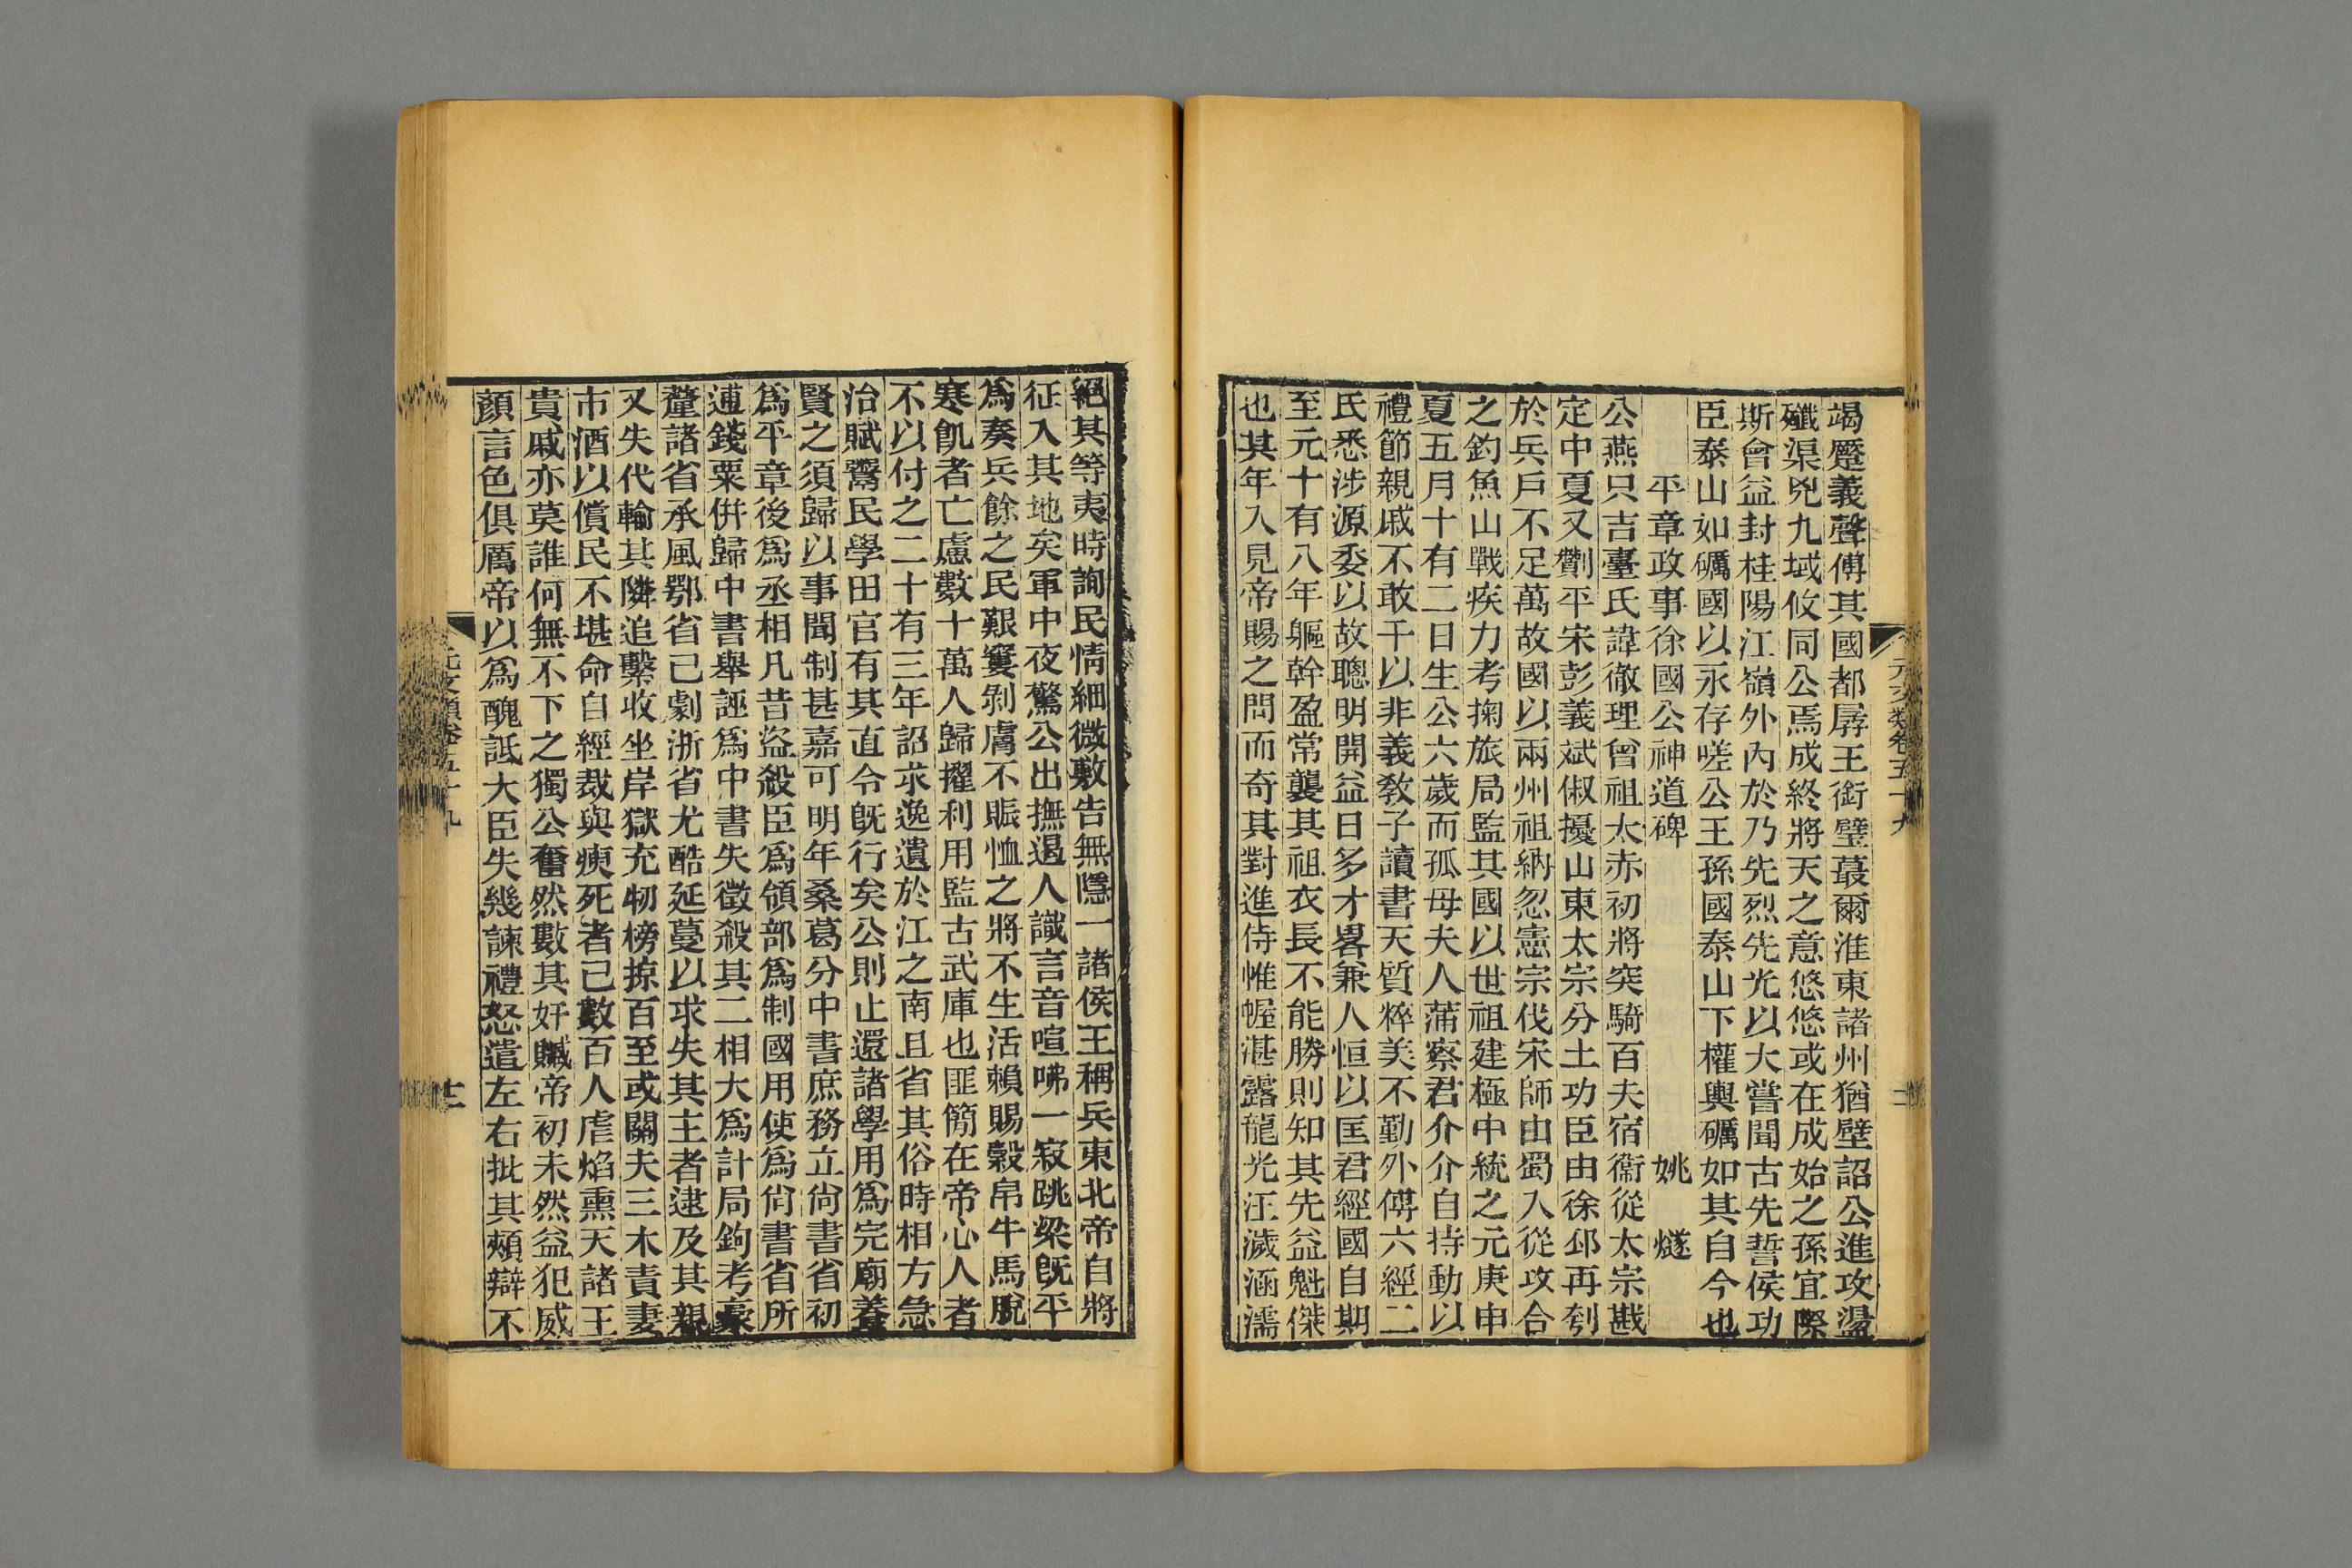 竭蹷義聲傅其國都孱王銜璧蕞爾淮東諸州猶壁詔公進攻盪
殲渠兇九域攸同公焉成終將天之意悠悠或在成始之孫宜際
斯會益封桂陽江嶺外內於乃先烈先光以大嘗聞古先誓侯功
臣泰山如礪國以永存嗟公王孫國泰山下權輿礪如其自今也
平章政事徐國公神道碑 姚 燧
公燕只吉臺氏諱徹理曾祖太赤初將突騎百夫宿衞從太宗戡
定中夏又劗平宋彭義斌俶擾山東太宗分土功臣由徐邳再刳
於兵戶不足萬故國以兩州祖納忽憲宗伐宋師由蜀入從攻合
之釣魚山戰疾力考掬旅局監其國以世祖建極中統之元庚申
夏五月十有二日生公六歲而孤母夫人蒲察君介介自持動以
禮節親戚不敢干以非義敎子讀書天質粹美不勤外傅六經二
氏悉涉源委以故聰明開益日多才畧兼人恒以匡君經國自期
至元十有八年軀幹盈常襲其祖衣長不能勝則知其先益魁傑
也其年入見帝賜之問而奇其對進侍帷幄湛露龍光汪濊涵濡
元文類卷五十九
絕其等夷時詢民情細微敷告無隱一諸侯王稱兵東北帝自將
征入其地矣軍中夜驚公出撫遏人識言音喧咈一寂跳梁旣平
爲奏兵餘之民艱窶剝膚不賑恤之將不生活賴賜穀帛牛馬脫
寒飢者亡慮數十萬人歸擢利用監古武庫也匪簡在帝心人者
不以付之二十有三年詔求逸遺於江之南且省其俗時相方急
治賦鬻民學田官有其直令旣行矣公則止還諸學用爲完廟養
賢之須歸以事聞制甚嘉可明年桑葛分中書庶務立尙書省初
爲平章後爲丞相凡昔盜殺臣爲領部爲制國用使爲尙書省所
逋錢粟倂歸中書舉誣爲中書失徵殺其二相大爲計局鉤考豪
釐諸省承風鄂省已劇浙省尤酷延蔓以求失其主者逮及其親
又失代輸其隣追繫收坐岸獄充牣榜掠百至或關夫三木責妻
市酒以償民不堪命自經裁與瘐死者已數百人虐焰熏天諸王
貴戚亦莫誰何無不下之獨公奮然數其奸贓帝初未然益犯威
顏言色俱厲帝以爲醜詆大臣失幾諫禮怒遣左右批其頰辯不
元文類卷五十九
十二